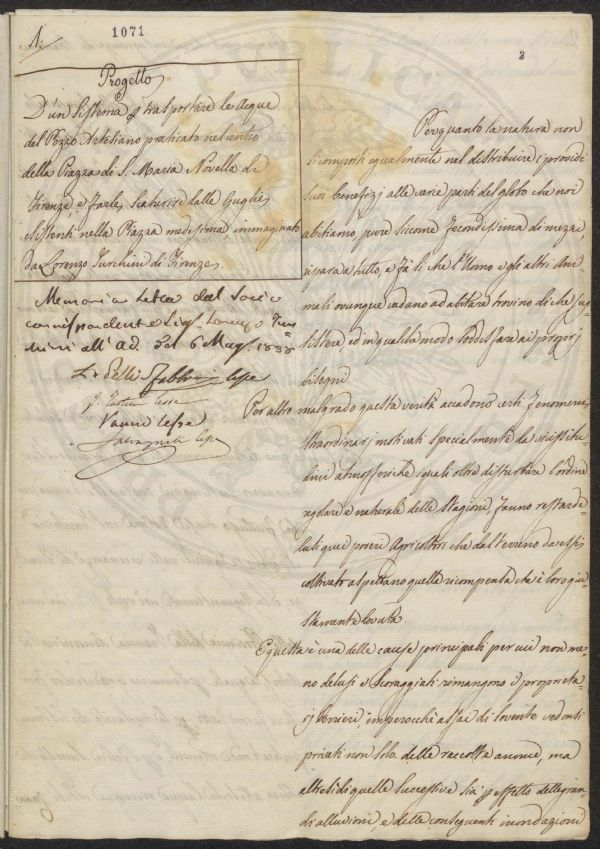 1.
1071
2
Progetto
D'un Sistema p trasportare le Acque
del Pozzo Artesiano praticato nel centro
della Piazza di S. Maria Novella di
Firenze, e farle scaturire dalle Guglie
esistenti nella Piazza medesima, immaginato
da Lorenzo Turchini di Firenze.
Memoria letta dal Socio
corrispondente Sigr. Lorenzo Tur-
chini all' ad. del 6 Magg. 1838
Pelli Fabbroni
Per quanto la natura non
si comporti egualmente nel distribuire i provvidi
suoi benefizj alle varie parti del globo che noi
abitiamo, pure siccome fecondissima di mezzi,
ripara a tutto, e fà sì che l'Uomo e gli altri Ani-
mali ovunque cadano ad abitare trovino di che sus-
sistere, ed in qualche modo soddisfare ai proprj
bisogni.
Per altro malgrado questa verità accadono certi fenomeni
straordinarj motivati specialmente da vicissitu-
dini atmosferiche i quali oltre disturbare l'ordine
regolare e naturale delle Stagioni, fanno restar de-
lusi quei poveri Agricoltori che dal terreno da essi
coltivato aspettano quella ricompensa che è loro giu-
stamente dovuta.
E questa è una delle cause principali per cui non me-
no delusi e scoraggiati rimangono i proprieta-
rj terrieri, imperocchè assai di sovente vedonsi
privati non solo delle raccolte annue, ma
altresì di quelle successive sia p effetto delle gran-
di alluvioni, e delle conseguenti inondazioni